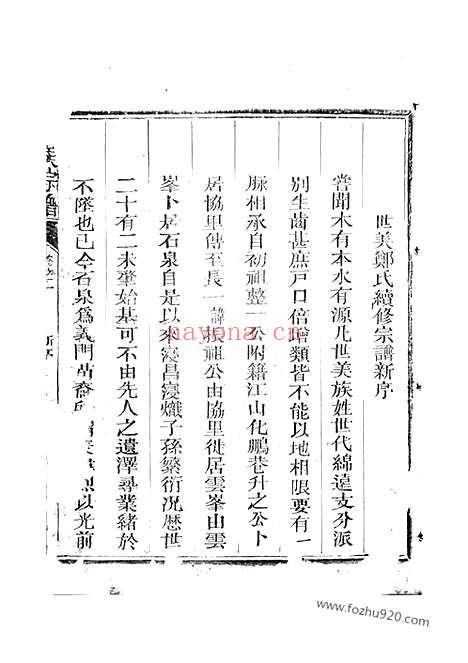 世美鄭氏續修宗譜新序
嘗聞木有本水有源凡世美族姓世代綿遠支分派
別生齒甚庶戶口倍增類皆不能以地相限要有一
脉相承自初祖整一公附籍江山化鵬巷升之公卜
居協里傳至長一諱振祖公由協里徙居雲峯由雲
峯卜居石泉自是以來寖昌寖熾子孫繁衍况歷世
二十有二未肇始基可不由先人之遺澤尋業緒於
不墜也已今石泉爲義門 裔 以光前
nayona.cn
www.fozhu920.com